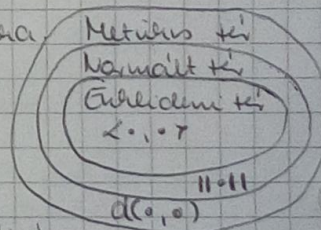 Metrikus tér
Normált tér
Euklideszi tér
<•,•>
||•||
d(•,•)